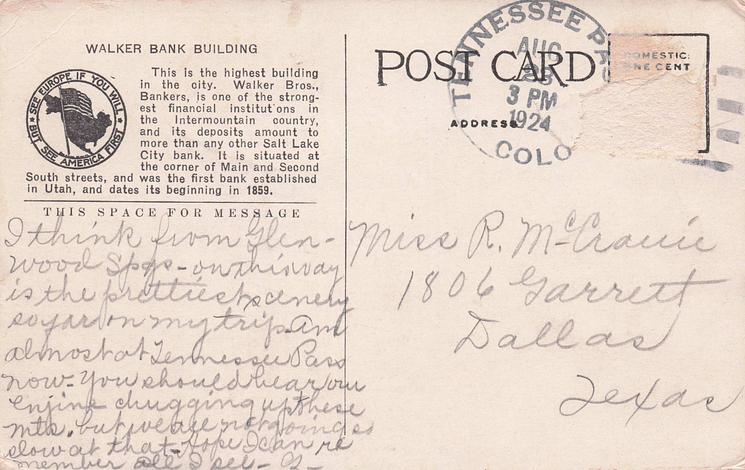 WALKER BANK BUILDING
SEE EUROPE IF YOU WILL
BUT SEE AMERICA FIRST
This is the highest building
in the city. Walker Bros.,
Bankers, is one of the strong-
est financial institut'ons in
the Intermountain country,
and its deposits amount to
more than any other Salt Lake
City bank. It is situated at
the corner of Main and Second
South streets, and was the first bank established
in Utah, and dates its beginning in 1859.
THIS SPACE FOR MESSAGE
I think from Glen-
wood Spgs - on this way
is the prettiest scenery
so far on my trip. Am
almost at Tennessee Pass
now - You should hear our
Engine chugging up these
mts. but we are not going so
slow at that. Hope I can re
member all I see -
POST CARD
ADDRESS
DOMESTIC:
ONE CENT
TENNESSEE PA
AUG
3 PM
1924
COLO
Miss R. McCranie
1806 Garrett
Dallas
Texas